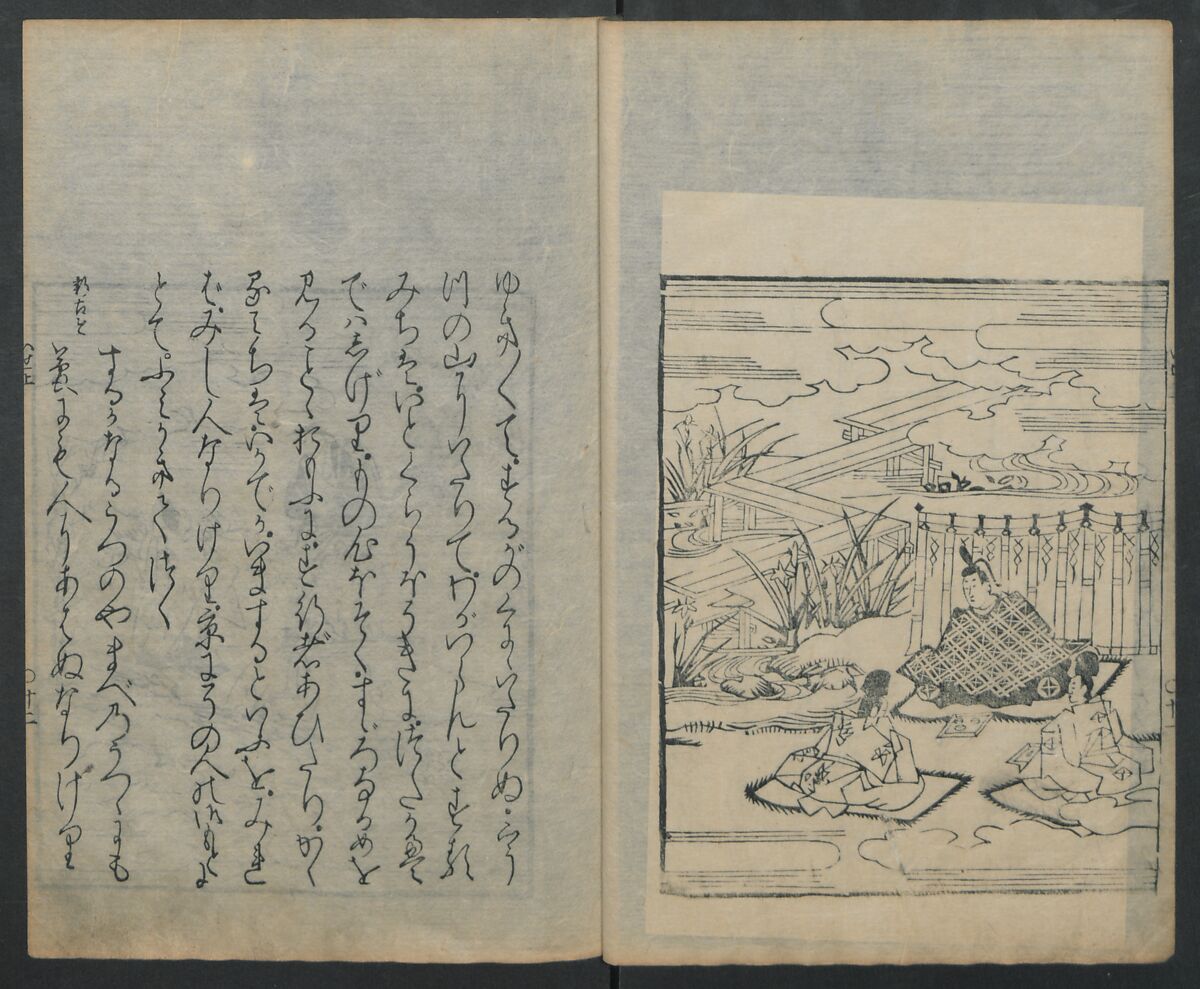 ゆき〱て。するがのくにゝいたりぬ。う
つの山にいたりて。わがいらんとする
みちは。いとくらうほそきに。つたかえ
ではしげり。もの心ぼそく。すゞろなるめを
見ることゝおもふに。す行者あひたり。かゝ
るみちは。いかでか。いまするといふを。みれ
ば。みし人なりけり。京にその人の御もとに
とて。ふみかきてつく
するがなるうつのやまべのうつゝにも
新古今
夢にも人にあはぬなりけり